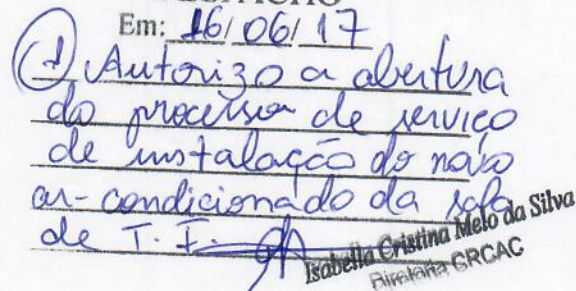 Em: 16/06/17
1 Autorizo a abertura
do processo de serviço
de instalação do novo
ar-condicionado da sala
de T. I.
Isabella Cristina Melo da Silva
Diretoria CRCAC